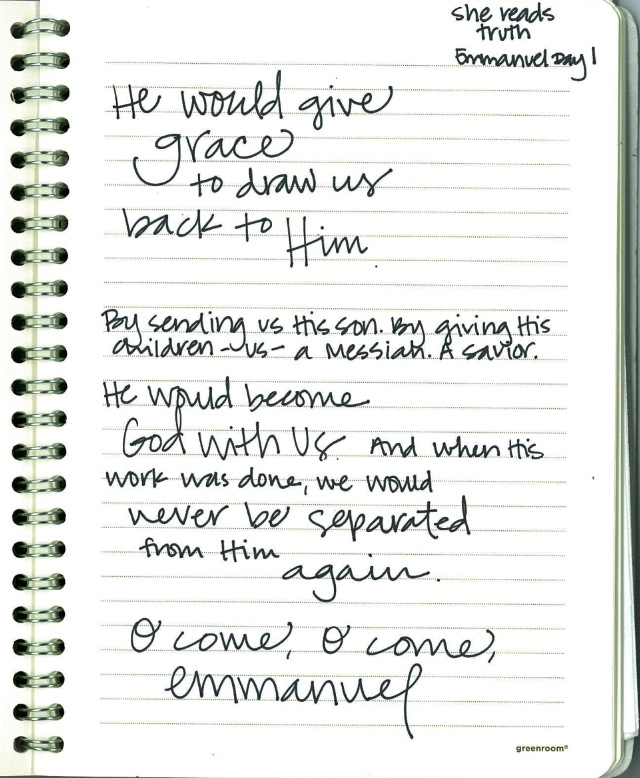 she reads
truth
Emmanuel Day 1
He would give
grace
to draw us
back to Him.
By sending us His son. By giving His
children - us - a Messiah. A savior.
He would become
God with Us. And when His
work was done, we would
never be separated
from Him
again.
O come, O come,
emmanuel
greenroom®